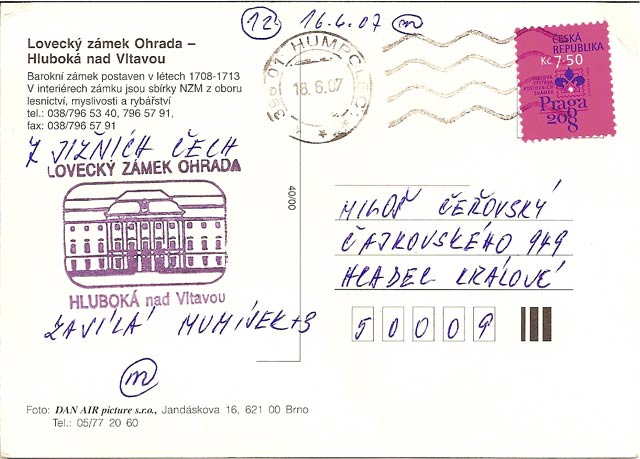 12 16.6.07 m
Lovecký zámek Ohrada –
Hluboká nad Vltavou
Barokní zámek postaven v létech 1708-1713
V interiérech zámku jsou sbírky NZM z oboru
lesnictví, myslivosti a rybářství
tel.: 038/796 53 40, 796 57 91,
fax: 038/796 57 91
Z JIŽNÍCH ČECH
LOVECKÝ ZÁMEK OHRADA
HLUBOKÁ nad Vltavou
ZAVÍLÁ MUMÍVEK+3
m
Foto: DAN AIR picture s.r.o., Jandáskova 16, 621 00 Brno
Tel.: 05/77 20 60
40/00
396 01 HUMPOLEC 1
18.6.07
ČESKÁ
REPUBLIKA
Kč 7,50
SVĚTOVÁ
VÝSTAVA
POŠTOVNÍCH
ZNÁMEK
Praga
2008
MILOŠ ČEŘOVSKÝ
ČAJKOVSKÉHO 949
HRADEC KRÁLOVÉ
50009